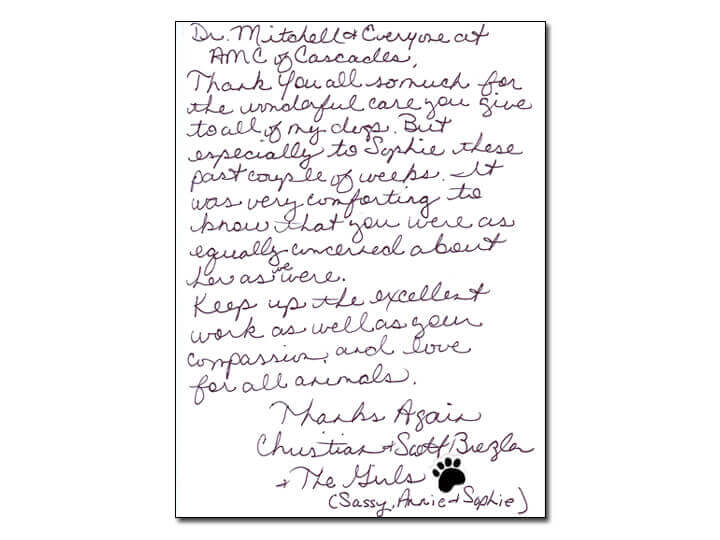 Dr. Mitchell & Everyone at
AMC of Cascades,
Thank You all so much for
the wonderful care you give
to all of my dogs. But
especially to Sophie these
past couple of weeks. It
was very comforting to
know that you were as
equally concerned about
her as we were.
Keep up the excellent
work as well as your
compassion, and love
for all animals.
Thanks Again
Christian & Scott Brezler
& The Girls
(Sassy, Annie & Sophie)